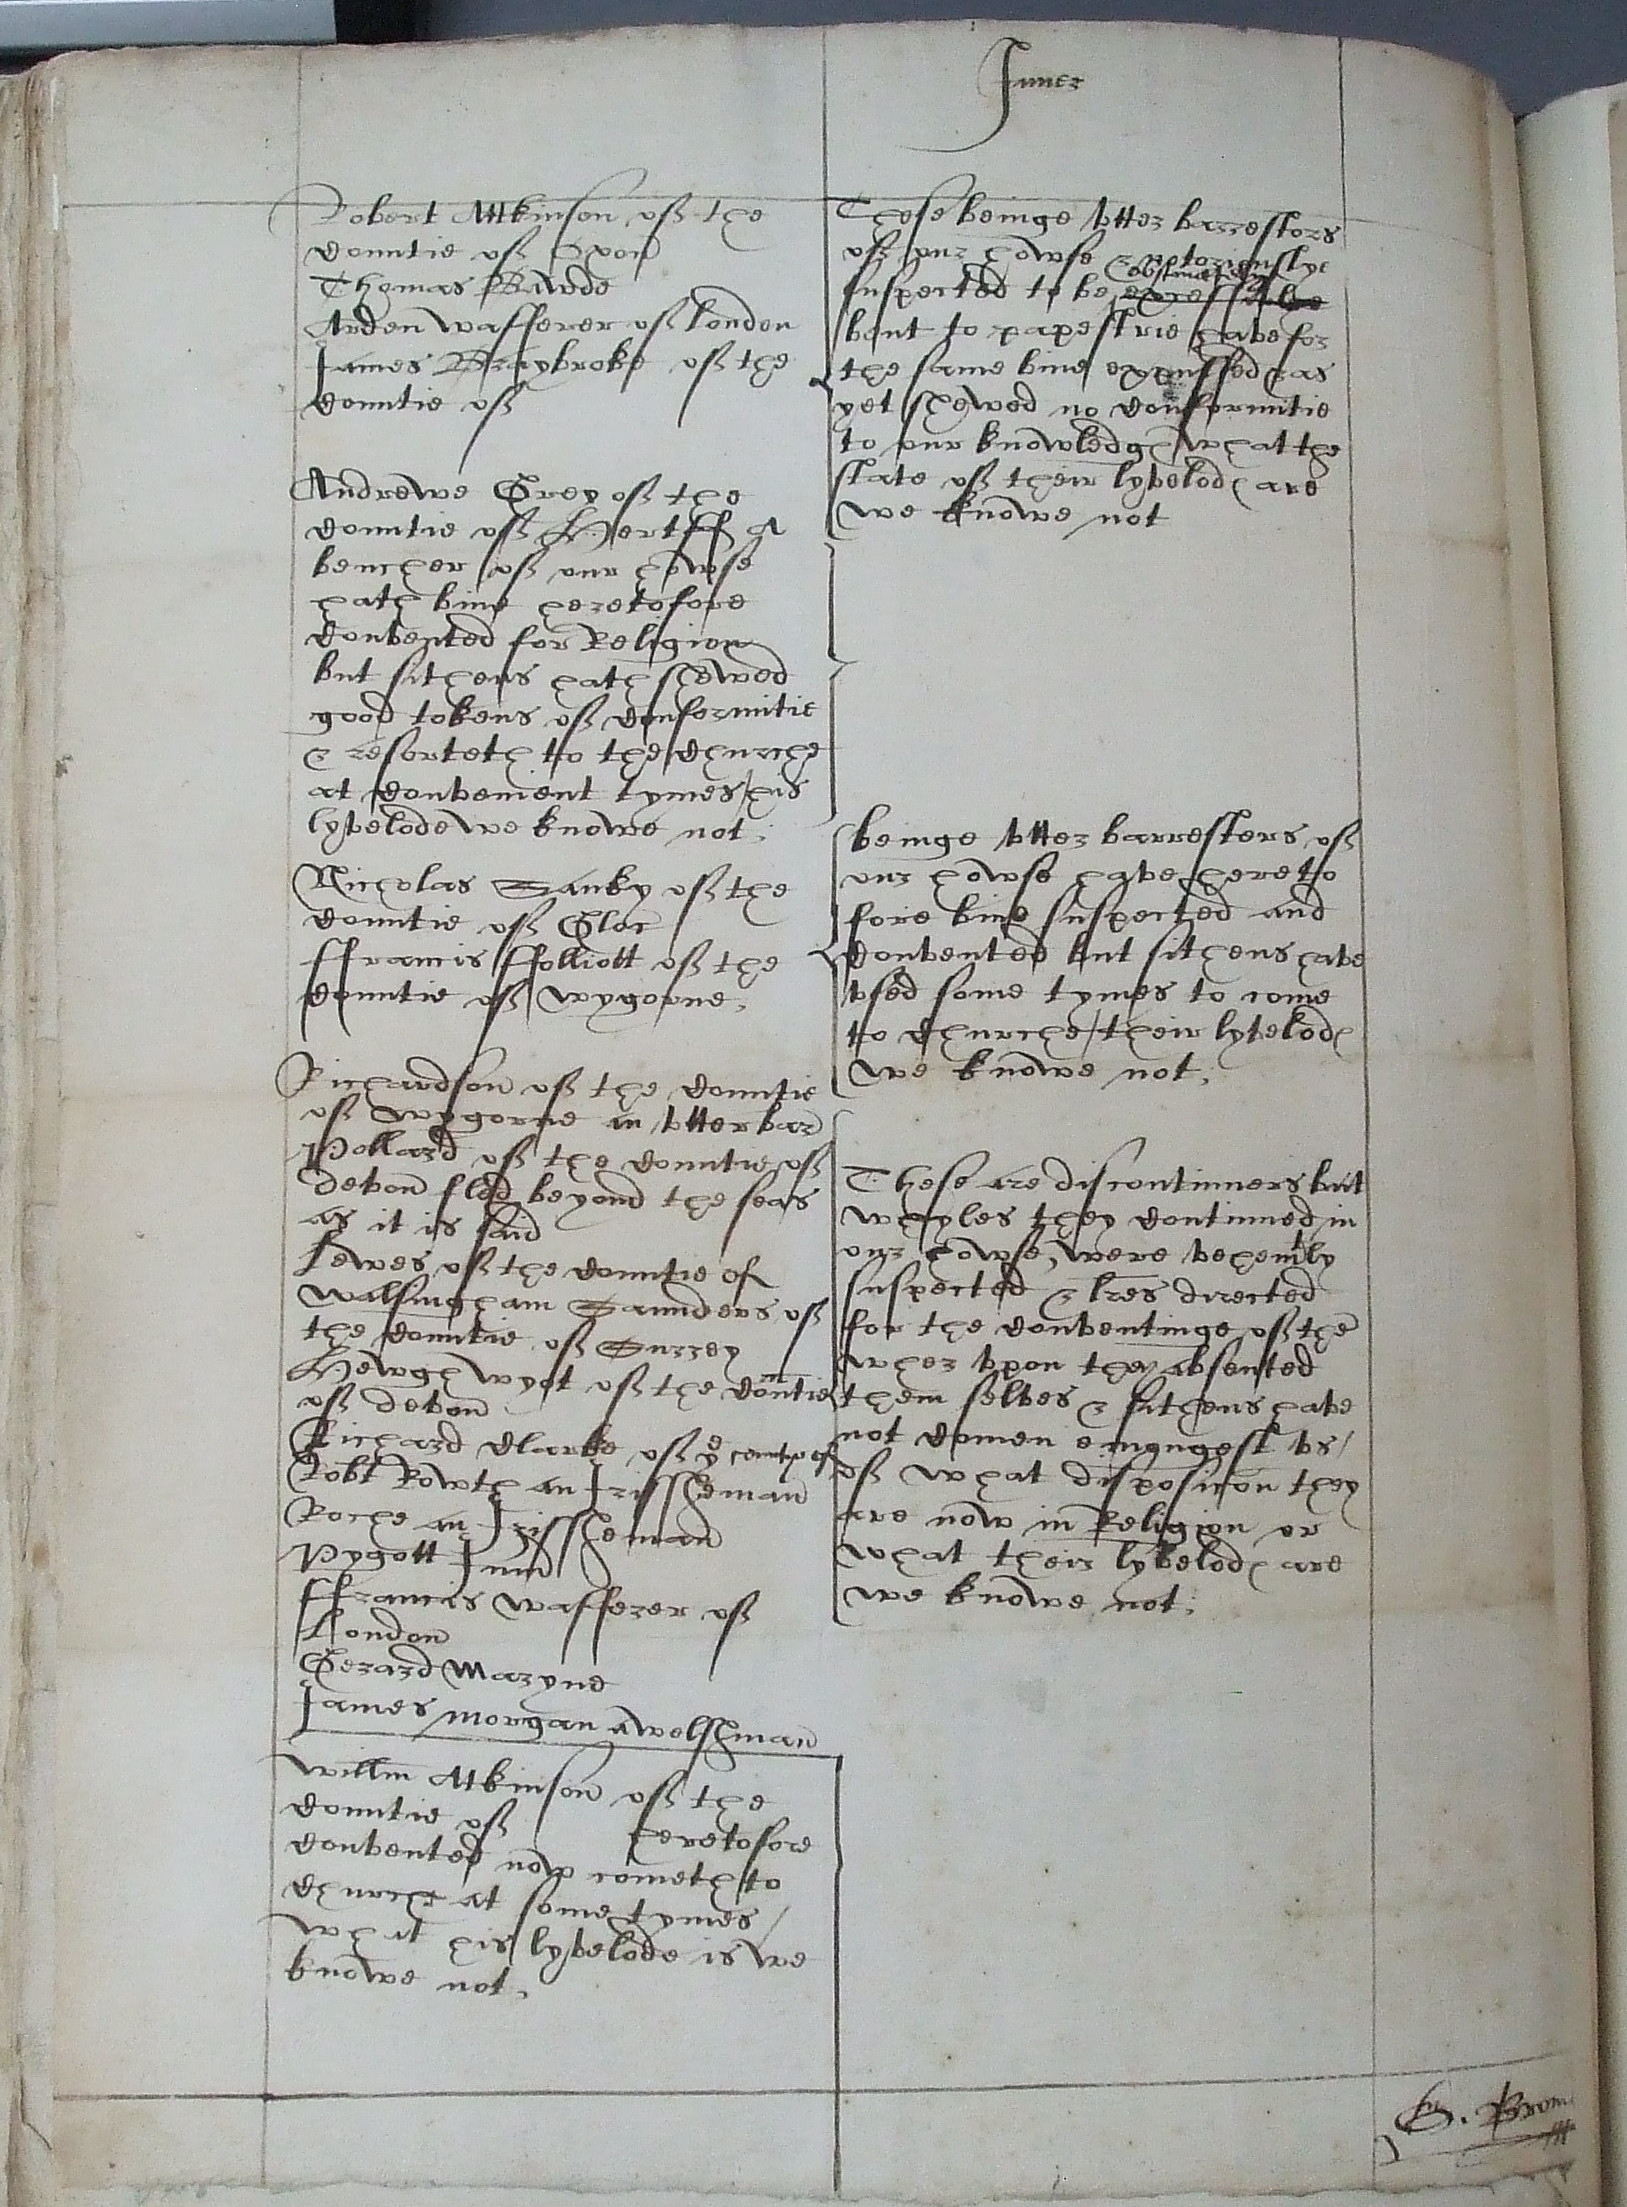 Inner
Robert Attkinson of the
Countie of Oxon
Thomas Bawde
Arden wafferer of london
James Braybroke of the
Countie of
These beinge vtter barrestors
of our howse & notoriouslye
suspected to be obstinatelye
bent to papestrie have for
the same bine expulsed & as
yet shewed no Conformitie
to our knowledge / what the
state of their lyvelod are
we knowe not
Andrewe Grey of the
Countie of Hertff A
bencher of our howse
hath bine heretofore
Convented for Religion
but sithens hath shewed
good tokens of Conformitie
& resorteth to the Churche
at Convenient tymes / his
lyvelode we knowe not.
Nicholas Sanky of the
Countie of Gloc
ffrancis ffolliott of the
Countie of wygorne.
beinge vtter barresters of
our howse have hereto
fore bine suspected and
Convented but sithens have
vsed some tymes to come
to Churche / their lyvelod
we knowe not.
Richardson of the Countie
of wygorne an vtter bar
Pollard of the Countie of
devon fled beyond the seas
as it is said
Lewes of the Countie of
walsingham Saunders of
the Countie of Surrey
Hewgh wyot of the Countie
of devon
Richard Clarke of ye countye of
Robt Rowth an Irissheman
Roche an Irissheman
Pygott Iun
ffrancis wafferer of
London
Gerard Maryne
James morgan a welshman
These are discontinuers but
whyles they Continued in
our howse, were vehemtly
suspected & lres directed
for the Conventinge of the
wherevpon they absented
them selves & sithens have
not Comen emongest vs /
of what disposicon they
are now in Religion or
what their lyvelod are
we knowe not.
Willm Atkinson of the
Countie of heretofore
Convented now cometh to
Churche at some tymes /
what his lyvelode is we
knowe not.
G. Brom